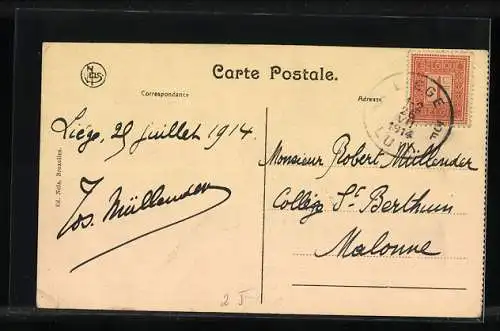 Carte Postale.
Correspondance
Adresse
BELGIQUE
LIEGE
1914
Liége, 29 juillet 1914.
Jos. Müllender
Monsieur Robert Müllender
Collège St Berthuin
Malonne
Ed. Nels, Bruxelles.